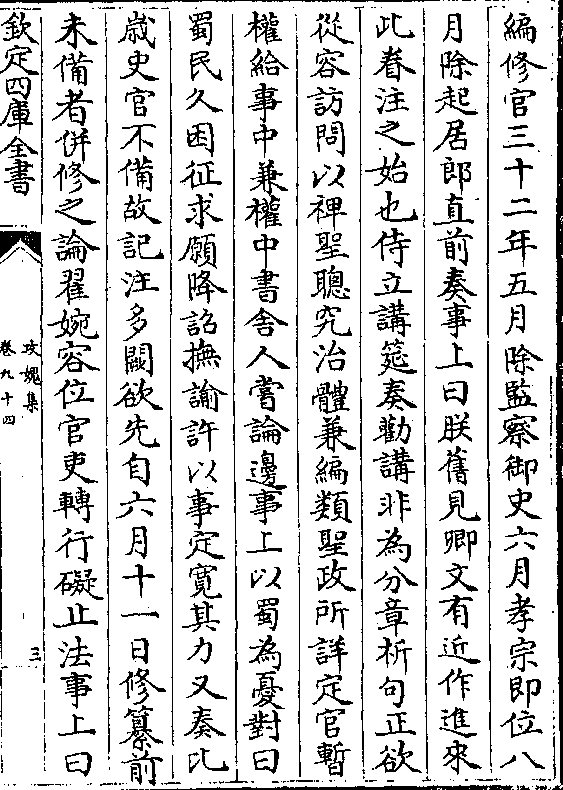 編修官三十二年五月除監察御史六月孝宗即位八
月除起居郎直前奏事上曰朕舊見卿文有近作進來
此眷注之始也侍立講筵奏勸講非為分章析句正欲
從容訪問以裨聖聰究治體兼編類聖政所詳定官暫
權給事中兼權中書舍人嘗論邊事上以蜀為憂對曰
蜀民久困征求願降詔撫諭許以事定寛其力又奏比
歲史官不備故記注多闕欲先自六月十一日修纂前
未備者併修之論翟婉容位官吏轉行礙止法事上曰
欽定四庫全書
攻媿集
卷九十四
三